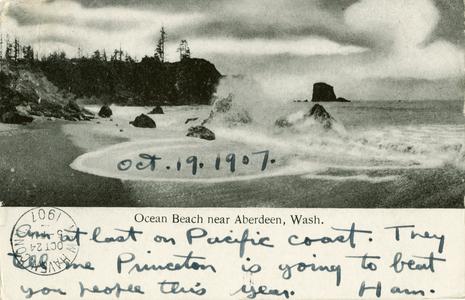 Oct. 19. 1907.
Ocean Beach near Aberdeen, Wash.
Am at last on Pacific coast. They
tell me Princeton is going to beat
you people this year. Ham.
NEW HAVEN
OCT 24
1907